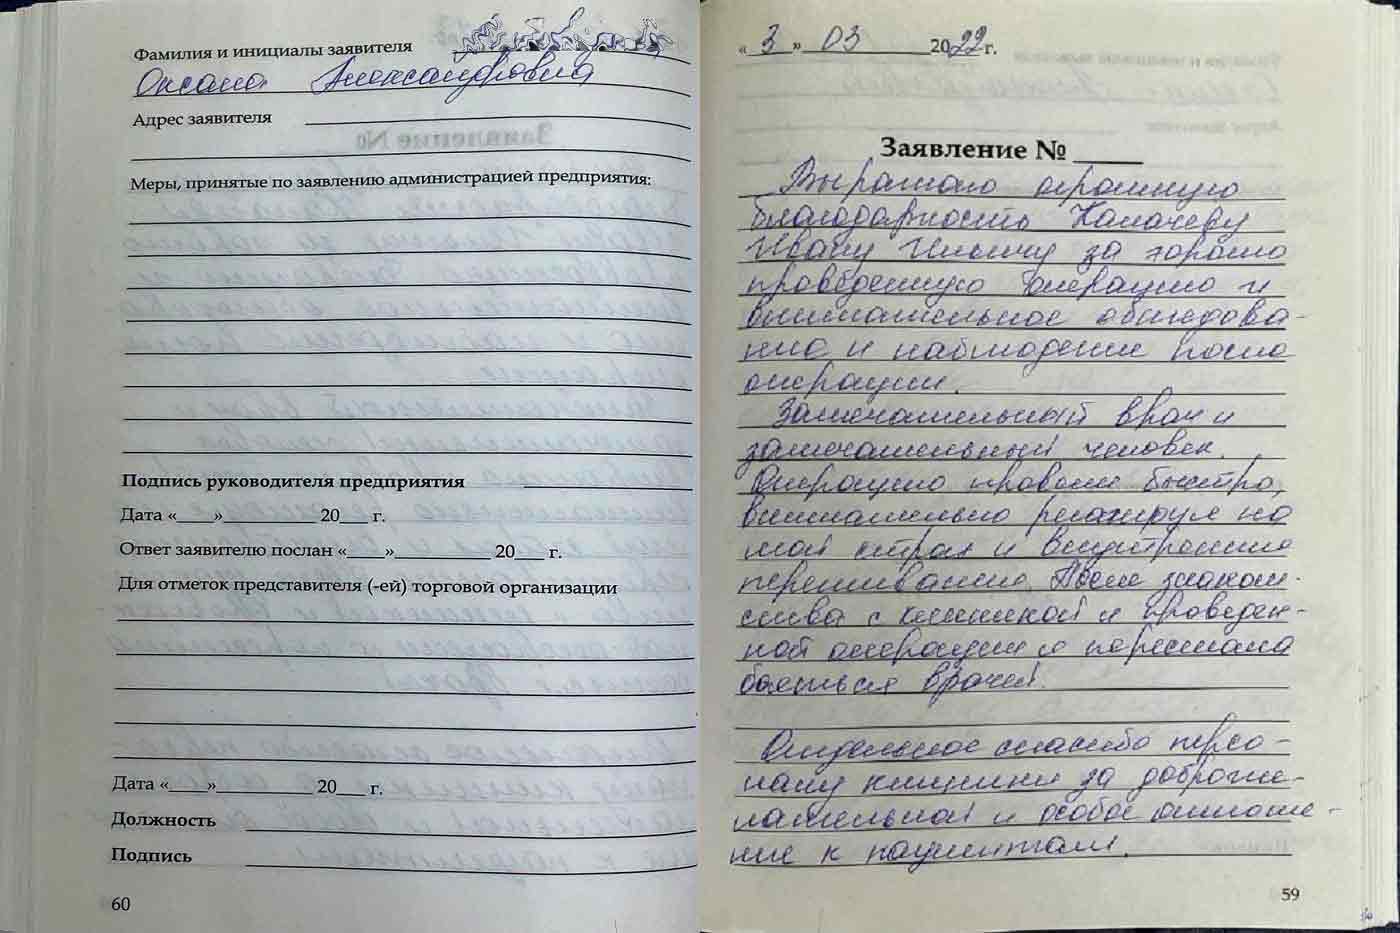 Фамилия и инициалы заявителя
Оксана Александровна
Адрес заявителя
Меры, принятые по заявлению администрацией предприятия:
Подпись руководителя предприятия
Дата «____»__________ 20___ г.
Ответ заявителю послан «____»__________ 20___ г.
Для отметок представителя (-ей) торговой организации
Дата «____»__________ 20___ г.
Должность
Подпись
60
« 3 » 03 2022 г.
Заявление № _____
Выражаю огромную
благодарность Калачеву
Ивану Ильичу за хорошо
проведенную операцию и
внимательное обследова-
ние и наблюдение после
операции.
Замечательный врач и
замечательный человек.
Операцию провели быстро,
внимательно реагируя на
мой страх и внутренние
переживания. После знаком-
ства с клиникой и проведен-
ной операции я перестала
бояться врачей.
Отдельное спасибо персо-
налу клиники за доброже-
лательной и особое отноше-
ние к пациентам.
59